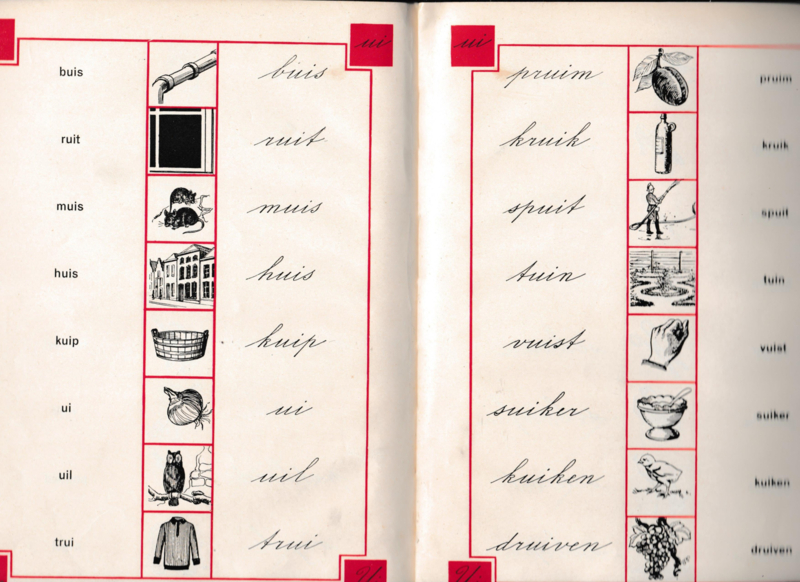 ui
buis buis
ruit ruit
muis muis
huis huis
kuip kuip
ui ui
uil uil
trui trui
ui
pruim pruim
kruik kruik
spuit spuit
tuin tuin
vuist vuist
suiker suiker
kuiken kuiken
druiven druiven